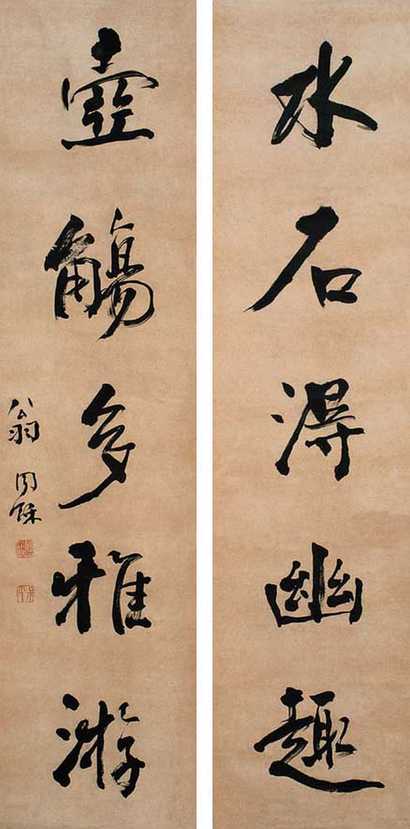 水石得幽趣
壺觴多雅游
翁同龢